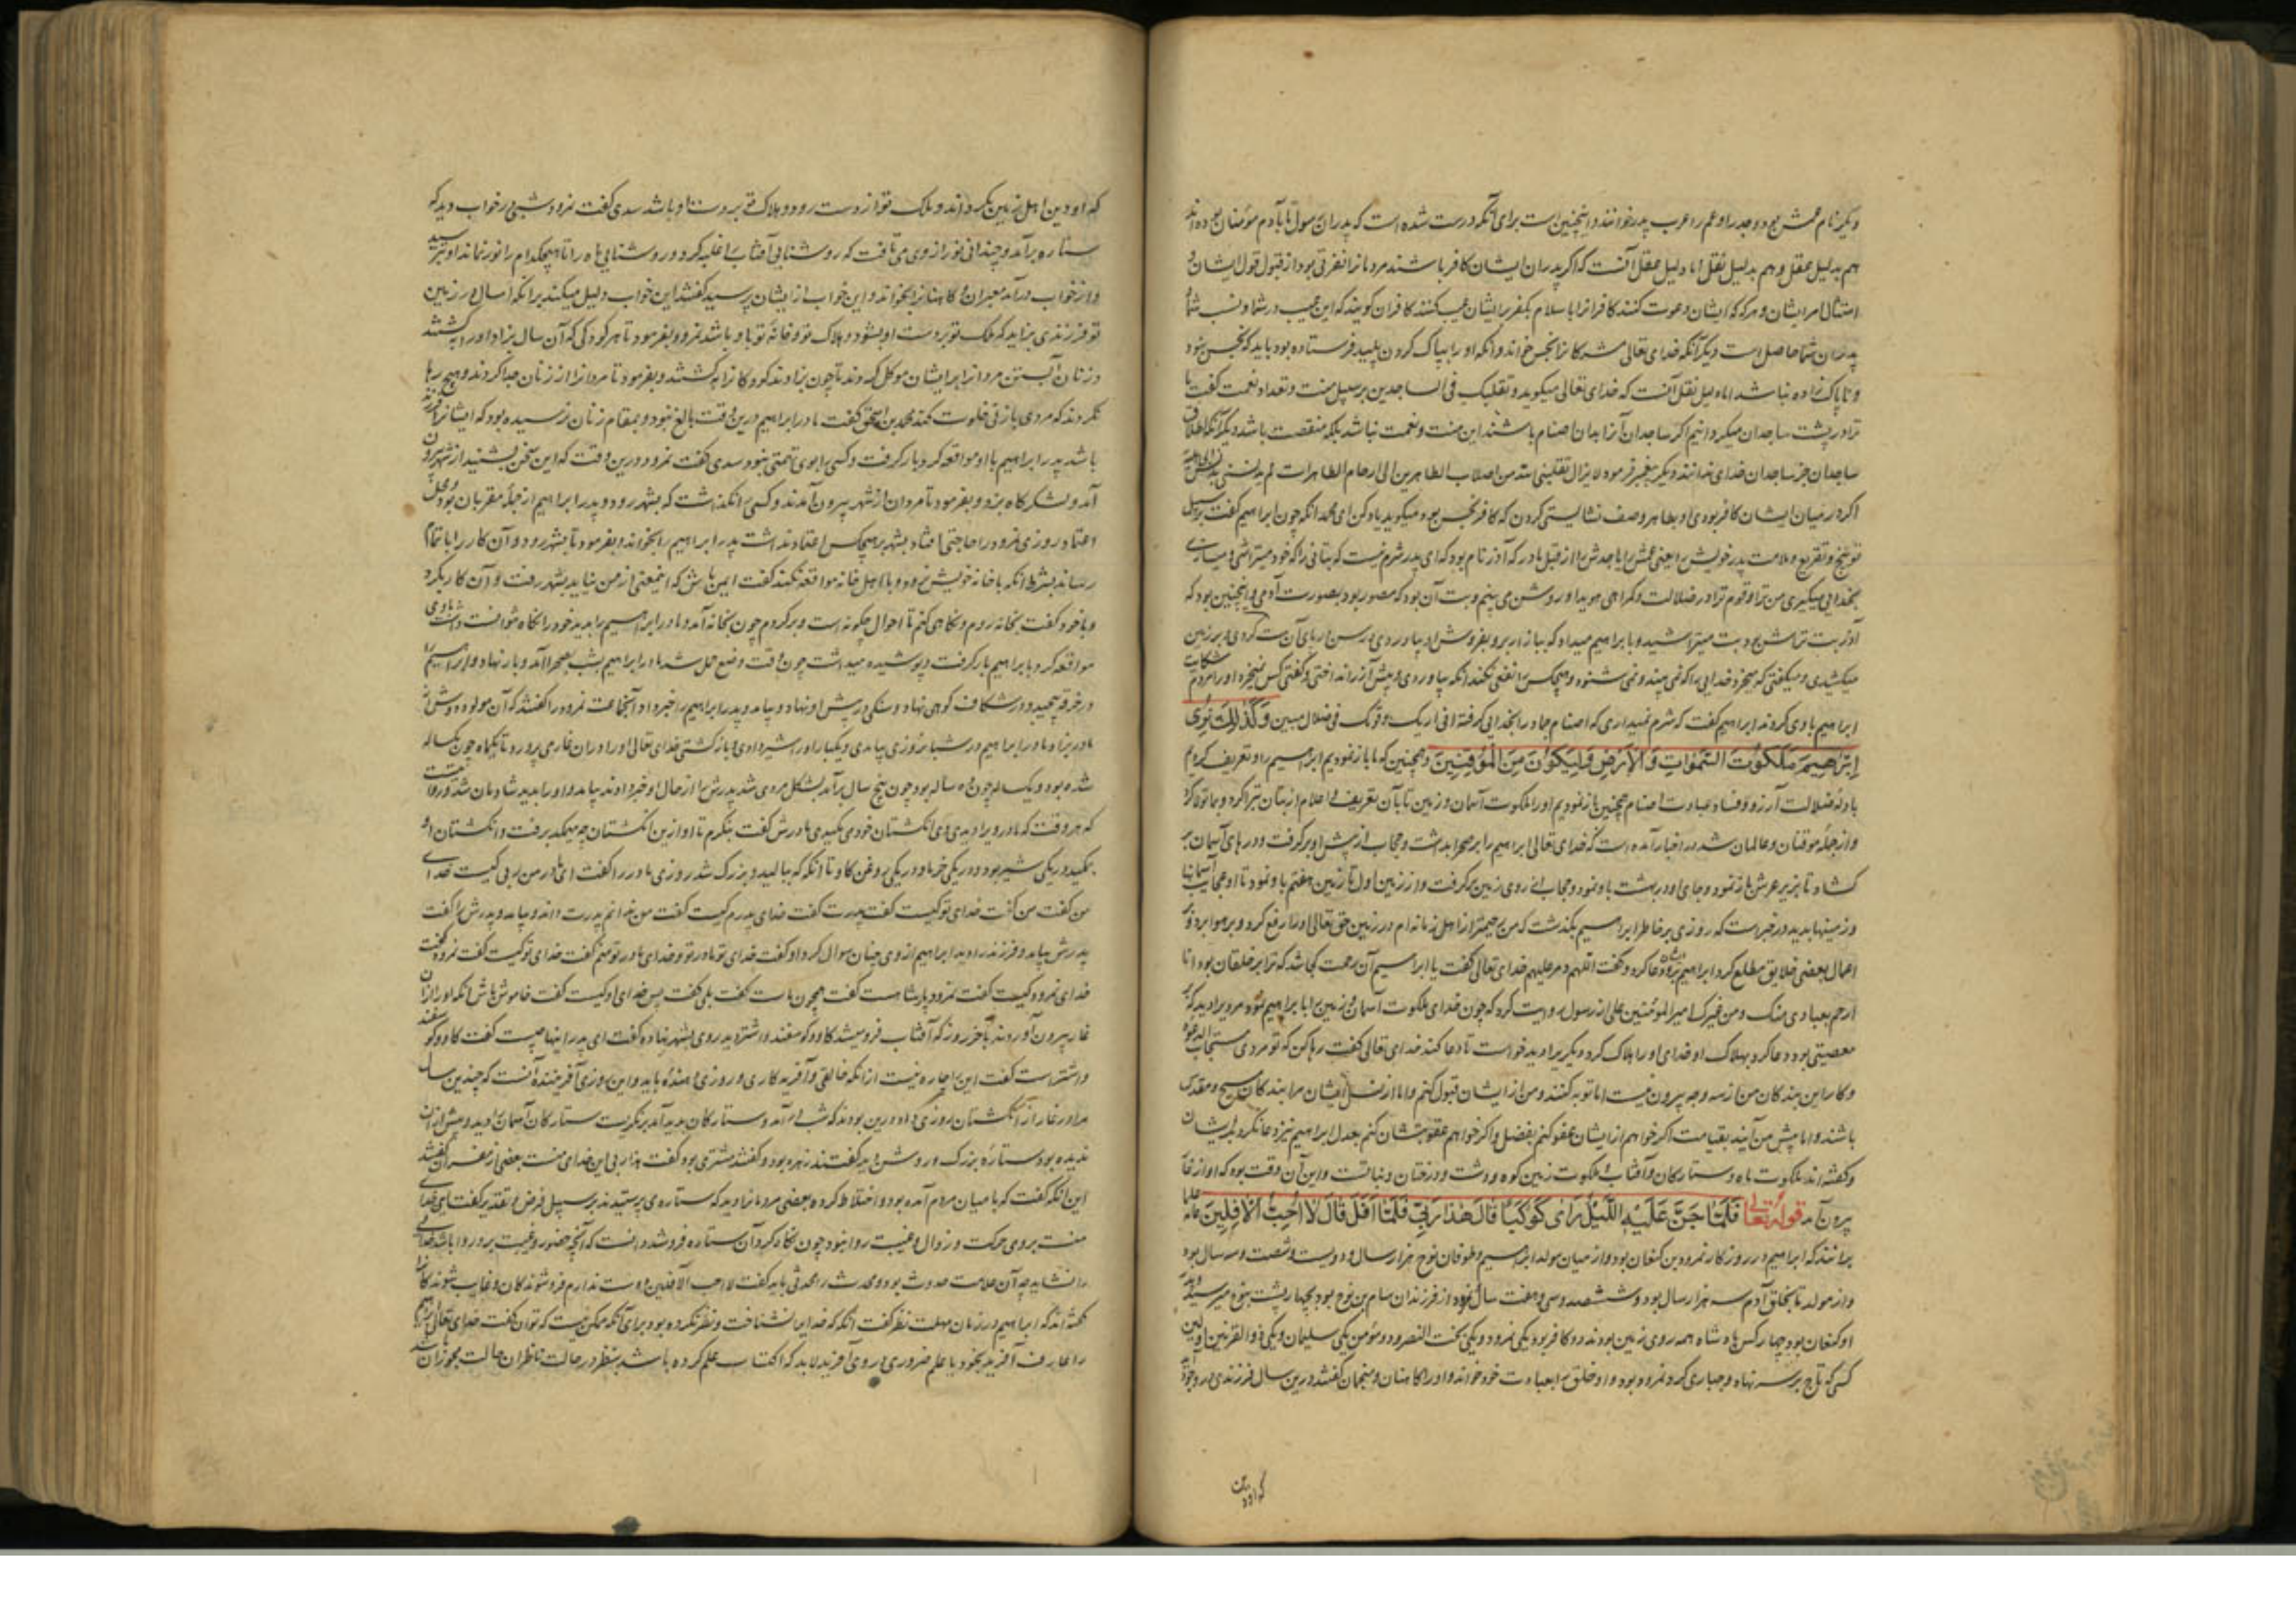 دیگر نام عمش بود و جد را و عم را عرب پدر خوانند و اینچنین است برای آنکه درست شده است که پدران رسول تا بآدم مؤمنان بوده اند
هم بدلیل عقل و هم بدلیل نقل اما دلیل عقل آنست که اگر پدران ایشان کافر باشند مردمانرا نفرتی بود از قبول قول ایشان و
امتثال امر ایشان و هر که که ایشان دعوت کنند کافرانرا باسلام بکفر پدر ایشان عیب کنند کافران گویند که این عیب در شما و نسب شما و
پدران شما حاصل است دیگر آنکه خدای تعالی مشرکانرا نجس خواند و آنکه او را بپاک کردن پلید فرستاده بود باید که نجس نبود
و ناپاک زاده نباشد اما دلیل نقل آنست که خدای تعالی میگوید و تقلبک فی الساجدین بر سبیل منت و تعداد نعمت گفت ما
ترا در پشت ساجدان میگردانیم اگر ساجدان آنرا بدان اصنام باشند این منت و نعمت نباشد بلکه منقصت باشد دیگر آنکه اطلاق
ساجدان جز ساجدان خدای ندانند دیگر پیغمبر فرمود لا یزال ینقلنی الله من اصلاب الطاهرین الی ارحام الطاهرات لم یدنسنی بدنس الجاهلیة
اگر در میان ایشان کافر بودی او بطاهر وصف نشایستی کردن که کافر نجس بود میگوید یاد کن ای محمد آنکه چون ابراهیم گفت بر سبیل
توبیخ و تقریع و ملامت پدر خویش را یعنی عمش را یا جدش را از قبل مادر که آذر نام بود که ای پدر شرم نیست که بتانی را که خود میتراشی و میسازی
بخدایی میگیری من ترا و قوم ترا در ضلالت و گمراهی هویدا و روشن می بینم و بت آن بود که مصور بود بصورت آدمی و اینچنین بود که
آذر بت تراش بود بت میتراشید و بابراهیم میداد که ببازار بر و بفروش او بیاوردی و رسن در پای آن بت کردی و بر زمین
میکشیدی و میگفتی که میخرد خدایی را که نمی بیند و نمی شنود و هیچکس را نفعی نکند آنگه بیاوردی و پیش آزر انداختی و گفتی کس نمیخرد او را مردم شکایت
ابراهیم باوی کردند ابراهیم گفت که شرم نمیداری که اصنام جماد را بخدایی گرفته انی اریک و قومک فی ضلال مبین وَكَذٰلِكَ نُرِی
اِبْرٰهِیمَ مَلَكُوتَ السَّمٰوٰاتِ وَالْاَرْضِ وَلِیَكُونَ مِنَ الْمُوقِنِینَ و همچنین که ما باز نمودیم ابراهیم را و تعریف کردیم
باو که ضلالت آزر و فساد عبادت اصنام همچنین باز نمودیم او را ملکوت آسمان و زمین تا بآن تعریف و اعلام از بتان تبرا کرد و بما تولا کرد
و از جمله موقنان و عالمان شد در اخبار آمده است که خدای تعالی ابراهیم را بر صحرا بداشت و حجاب از پیش او برگرفت و درهای آسمان
گشاد تا بزیر عرش باز نمود و جای او در بهشت باو نمود و حجاب از روی زمین برگرفت و از زمین اول تا زمین هفتم باو نمود تا او عجایب آسمانها
و زمینها بدید در خبر است که روزی بر خاطر ابراهیم بگذشت که من رحیمتر از اهل زمانه ام در زمین حق تعالی او را رفع کرد و بر هوا برد و بر
اعمال بعضی خلایق مطلع کرد ابراهیم دعا کرد و گفت اللهم دمر علیهم خدای تعالی گفت یا ابراهیم آن رحمت کجا شد که ترا بر خلقان بود انا
ارحم بعبادی منک و من غیرک امیر المؤمنین علی از رسول روایت کرد که چون خدای ملکوت آسمان و زمین را بابراهیم نمود مردی را دید که بر
معصیتی بود دعا کرد بهلاک او خدای او را هلاک کرد دیگری را دید خواست تا دعا کند خدای تعالی گفت رها کن که تو مردی مستجاب الدعوة
و کار این بندگان من از سه وجه بیرون نیست اما توبه کنند و من از ایشان قبول کنم و اما از نسل ایشان مرا بندگان مسبح و مقدس
باشند و اما پیش من آیند بقیامت اگر خواهم از ایشان عفو کنم بفضل و اگر خواهم عقوبتشان کنم بعدل ابراهیم نیز دعا نکرد بر ایشان
و گفته اند ملکوت ماه و ستارگان و آفتاب و ملکوت زمین کوه و دشت و درختان و نباتست و این آن وقت بود که او از غار
بیرون آمد قوله تعالی فَلَمّٰا جَنَّ عَلَیْهِ اللَّیْلُ رَاٰی كَوْكَباً قٰالَ هٰذٰا رَبِّی فَلَمّٰا اَفَلَ قٰالَ لٰا اُحِبُّ الْاٰفِلِینَ علما
برانند که ابراهیم در روزگار نمرود بن کنعان بود و از میان مولد ابراهیم و طوفان نوح هزار سال و دویست و شصت و سه سال بود
و از مولد تا بخلق آدم سه هزار سال بود و ششصد و سی و هفت سال نمرود از فرزندان سام بن نوح بود بچهار پشت بنوح میرسید و پدر
او کنعان بود چهار کس پادشاه همه روی زمین بودند دو کافر بود یکی نمرود و یکی بخت النصر و دو مؤمن یکی سلیمان و یکی ذو القرنین و اولین
کسی که تاج بر سر نهاد و جباری کرد نمرود بود و او خلق را بعبادت خود خواند و او را کاهنان و منجمان گفتند درین سال فرزندی در وجود آید
که او دین
که او دین اهل زمین بگرداند و ملک تو از دست رود و هلاک تو بر دست او باشد سدی گفت نمرود شبی در خواب دید که
ستاره برآمد و چندانی نور از وی می تافت که روشنایی آفتاب را غلبه کرد و روشنایی ماه را تا هیچکدام را نور نماند او بترسید
و از خواب درآمد معبران و کاهنانرا بخواند و این خواب از ایشان پرسید گفتند این خواب دلیل میکند بر آنکه امسال در زمین
تو فرزندی بزاید که ملک تو بر دست او بشود و هلاک تو و خانه تو باو باشد نمرود بفرمود تا هر کودکی که آن سال بزاد او را بکشتند
و زنان آبستن مردانرا بر ایشان موکل کردند تا چون بزادند کودکانرا بکشتند و بفرمود تا مردانرا از زنان جدا کردند و هیچ رها
نکردند که مردی با زنی خلوت کند محمد بن اسحق گفت مادر ابراهیم درین وقت بالغ نبود و بمقام زنان نرسیده بود که ایشانرا فرزند
باشد پدر ابراهیم با او مواقعه کرد بار گرفت و کسی را بوی تهمتی نبود سدی گفت نمرود درین وقت که این سخن بشنید از شهر بیرون
آمد و لشکرگاه بزد و بفرمود تا مردان از شهر بیرون آمدند و کسی را نگذاشت که بشهر رود و پدر ابراهیم از جمله مقربان بود و محل
اعتماد روزی نمرود را حاجتی افتاد بشهر بر هیچکس اعتماد نداشت پدر ابراهیم را بخواند و بفرمود تا بشهر رود و آن کار را باتمام
رساند بشرط آنکه باخانه خویش نرود و با اهل خانه مواقعه نکند گفت ایمن باش که اینمعنی از من نیاید بشهر رفت و آن کار بکرد
و باخود گفت بخانه روم و نگاهی کنم تا احوال چگونه است و برگردم چون بخانه آمد و مادر ابراهیم را بدید خود را نگاه نتوانست داشت باوی
مواقعه کرد بابراهیم بار گرفت و پوشیده میداشت چون وقت وضع حمل شد مادر ابراهیم بشب بصحرا آمد و بار نهاد و ابراهیم را
در خرقه پیچید و در شکاف کوهی نهاد و سنگی در پیش او نهاد و بیامد و پدر ابراهیم را خبر داد آنجماعت نمرود را گفتند که آن مولود دوش از
مادر بزاد مادر ابراهیم در شبانروزی بیامدی و یکبار او را شیر دادی و بازگشتی خدای تعالی او را در آن غار می پرورد تا یکماهه چون یکساله
شده بود و یکساله چون ده ساله بود چون پنج سال برآمد بشکل مردی شد پدرش را از حال او خبر دادند بیامد و او را بدید شادمان شد و روایت
که هر وقت که مادر ویرا دیدی وی انگشتان خود می مکیدی مادرش گفت بنگرم تا او ازین انگشتان چه میمکد برفت و انگشتان او
بمکید در یکی شیر بود و در یکی خرما و در یکی روغن گاو تا آنگه که ببالید و بزرگ شد روزی مادر را گفت ای مادر من ربی کیست خدای
من گفت من گفت خدای تو کیست گفت پدرت گفت خدای پدرم کیست گفت من ندانم پدرت داند و بیامد و پدرش را گفت
پدرش بیامد و فرزند را دید ابراهیم از وی چنان سوال کرد او گفت خدای تو مادر تو و خدای مادر تو منم گفت خدای تو کیست گفت نمرود گفت
خدای نمرود کیست گفت نمرود پادشا هست گفت همچون ماست گفت بلی گفت پس خدای او کیست گفت خاموش باش آنگه او را از آن
غار بیرون آوردند بآخر روز که آفتاب فرو میشد گاو و گوسفند و اشتر دید روی بشهر نهاده گفت ای پدر اینها چیست گفت گاو و گوسفند
و اشتر است گفت این را چاره نیست از آنکه خالقی و آفریدگاری و روزی دهنده باید و این روزی آفریننده آنست که چندین سال
مرا در غار از انگشتان روزی داد درین بودند که شب درآمد و ستارگان پدید آمد بنگریست ستارگان آسمان را دید و پیش از آن
ندیده بود ستاره بزرگ و روشن دید گفتند زهره بود و گفتند مشتری بود گفت هذا ربی این خدای منست بعضی از مفسران گفتند
این آنگه گفت که با میان مردم آمده بود و اختلاط کرده بعضی مردمانرا دید که ستاره می پرستیدند بر سبیل فرض و تقدیر گفت این خدای
منست بروی حرکت و زوال و غیبت روا نبود چون نگاه کرد آن ستاره فرو شد دانست که آنچه حضور و غیبت برو روا باشد خدایی
را نشاید چه آن علامت حدوث بود و محدث را محدثی باید گفت لا احب الآفلین دوست ندارم فرو شوندگان و غایب شوندگانرا
گفته اند که ابراهیم در زمان مهلت نظر گفت آنگه که خدایرا نشناخت و نظر نکرده بود برای آنکه ممکن نیست که توان گفت خدای تعالی ابراهیم
را عارف آفرید بخود یا علم ضروری در وی آفرید لابد که اکتساب علم کرده باشد بنظر در حالت ناظران حالت مجوزان باشد